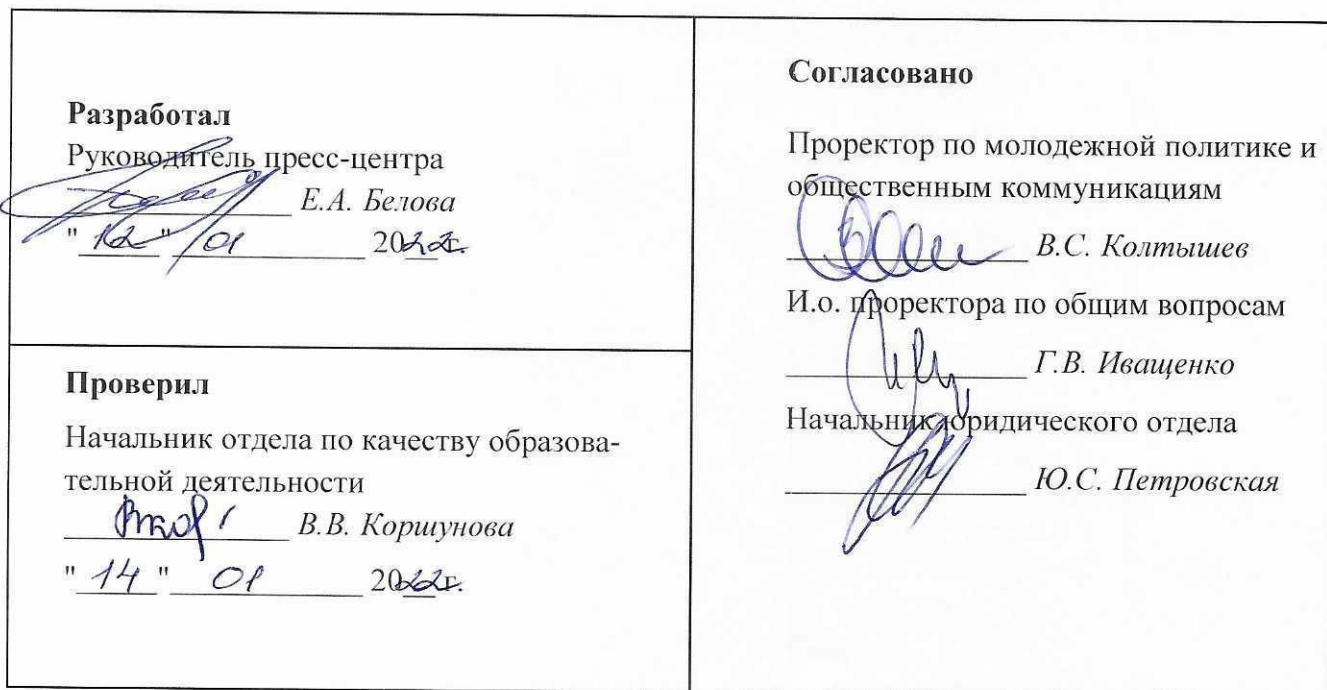 Разработал
Руководитель пресс-центра
Е.А. Белова
"12" 01 2022г.
Проверил
Начальник отдела по качеству образова-
тельной деятельности
В.В. Коршунова
"14" 01 2022г.
Согласовано
Проректор по молодежной политике и
общественным коммуникациям
В.С. Колтышев
И.о. проректора по общим вопросам
Г.В. Иващенко
Начальник юридического отдела
Ю.С. Петровская